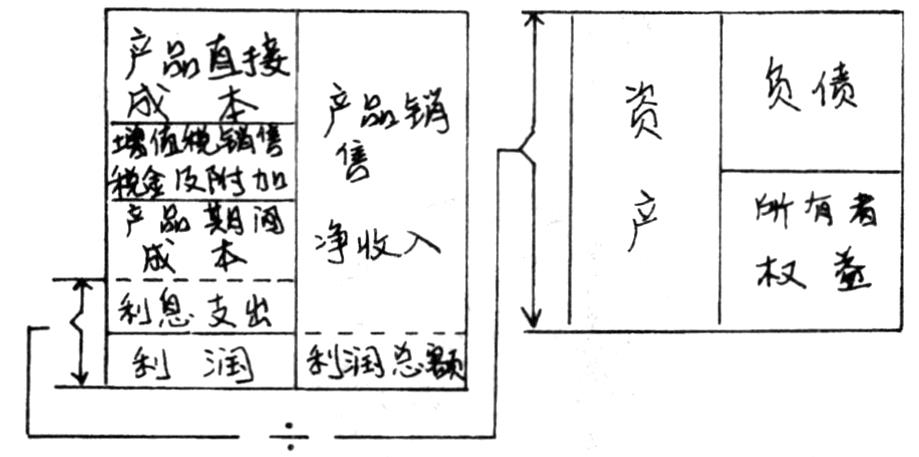 产品直接
成本
增值税销售
税金及附加
产品期间
成本
利息支出
利润
产品销
售
净收入
利润总额
÷
资
产
负债
所有者
权益